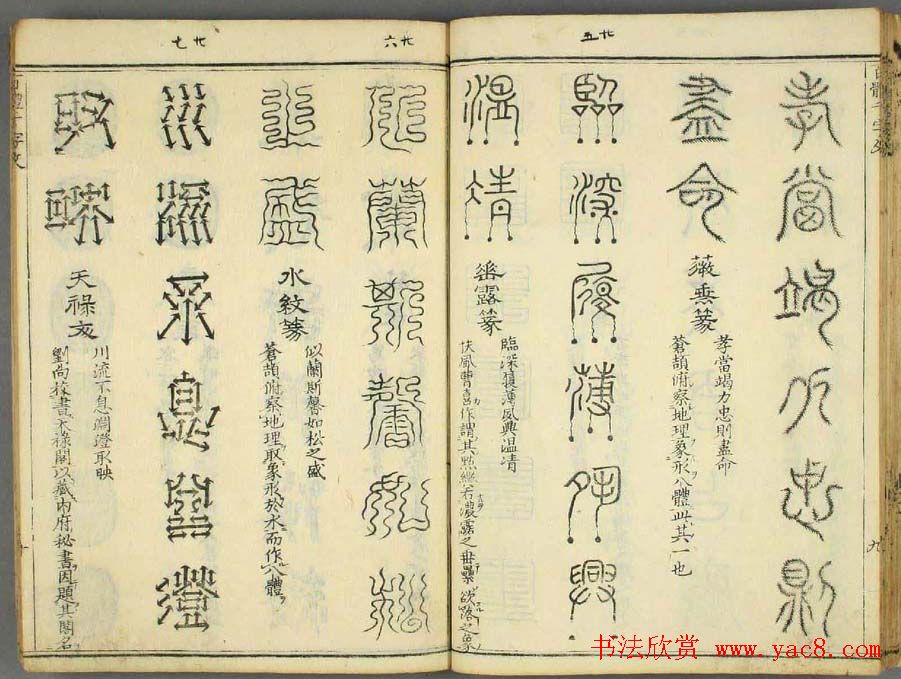 廿五
孝當竭力忠則
盡命
薇垂篆
孝當竭力忠則盡命
蒼頡俯察地理象形八體此其一也
臨深履薄夙興
温凊
垂露篆
臨深履薄夙興温清
扶風曹喜作謂其點綴若濃露之垂
廿六
似蘭斯馨如松
之盛
水紋篆
似蘭斯馨如松之盛
蒼頡俯察地理取象形於水而作八體
廿七
川流不息淵澄
取映
天祿文
川流不息淵澄取映
劉向校書天祿閣以藏内府秘書因題其閣名
書法欣赏 www.yac8.com